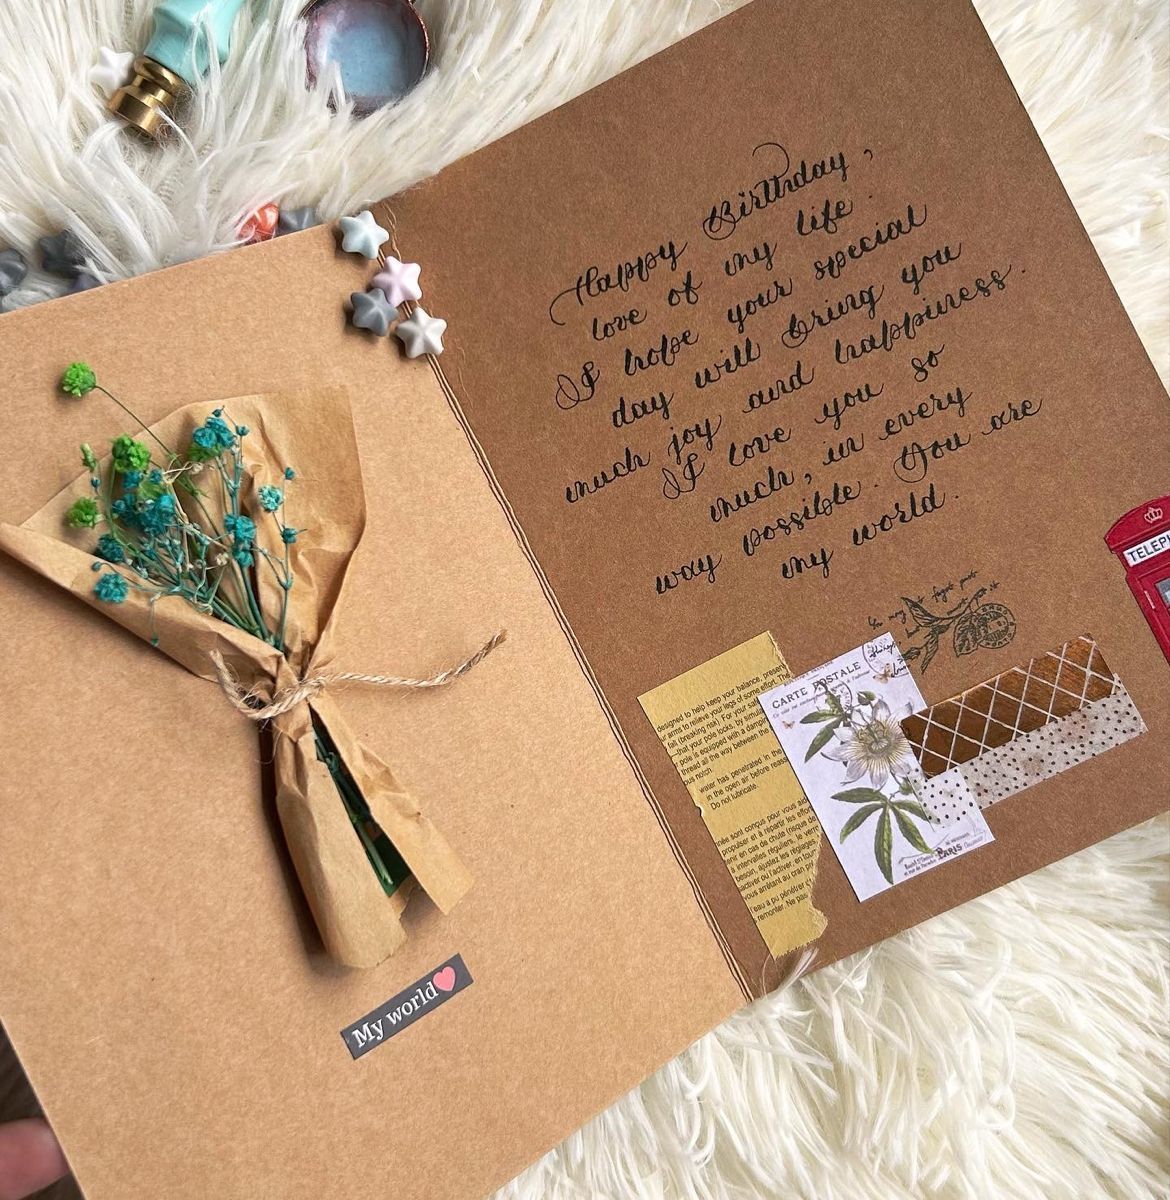 Happy Birthday,
love of my life.
I hope your special
day will bring you
much joy and happiness.
I love you so
much, in every
way possible. You are
my world.
My world❤
TELEPH
designed to help keep your balance, preserv
ur arms to relieve your legs of some effort. The
fall (breaking risk). For your safe
—that your pole locks, by simula
r pole is equipped with a dampin
thread all the way between the
ous notch.
water has penetrated in the
in the open air before reas
Do not lubricate.
née sont conçus pour vous aid
propulser et à répartir les effor
enir en cas de chute (risque de
à intervalles réguliers, le verr
besoin, ajustez les réglages.
activer ou l'activer, en tour
vous arrêtant au cran pr
l'eau a pu pénétrer
remonter. Ne pas
CARTE POSTALE
PARIS